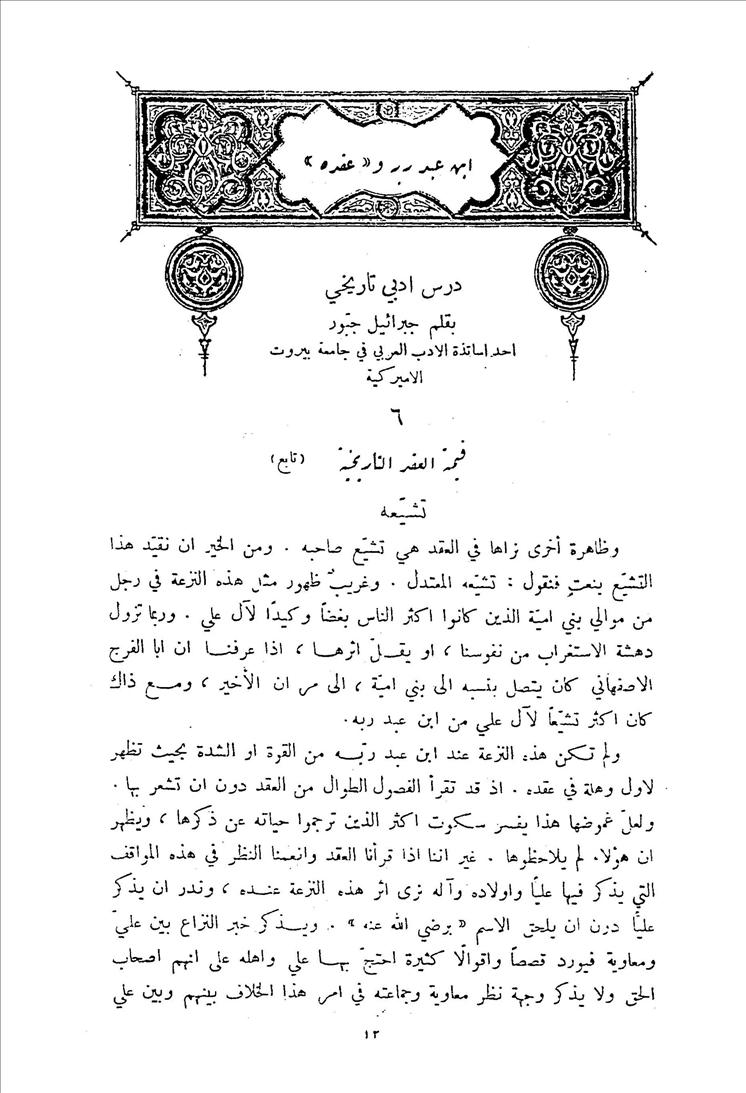 ابن عبد ربه و «عقده»
درس ادبي تاريخي
بقلم جبرائيل جبّور
احد اساتذة الادب العربي في جامعة بيروت
الاميركية
٦
قيمة العقد التاريخية (تابع)
تشيّعه
وظاهرة أخرى نراها في العقد هي تشيّع صاحبه . ومن الخير ان نقيّد هذا
التشيّع بنعتٍ فنقول : تشيّعه المعتدل . وغريبٌ ظهور مثل هذه النزعة في رجل
من موالي بني اميّة الذين كانوا اكثر الناس بغضاً وكيدًا لآل علي . وربما تزول
دهشة الاستغراب من نفوسنا ، او يقـلّ اثرهـا ، اذا عرفنـا ان ابا الفرج
الاصفهاني كان يتصل بنسبه الى بني اميّة ، الى مروان الأخير ، ومـع ذاك
كان اكثر تشيّعاً لآل علي من ابن عبد ربه .
ولم تكن هذه النزعة عند ابن عبد ربّـه من القوة او الشدة بحيث تظهر
لاول وهلة في عقده . اذ قد تقرأ الفصول الطوال من العقد دون ان تشعر بها .
ولعلّ غموضها هذا يفسر سكوت اكثر الذين ترجموا حياته عن ذكرها ، ويظهر
ان هؤلاء لم يلاحظوها . غير اننا اذا قرأنا العقد وانعمنا النظر في هذه المواقف
التي يذكر فيها عليًّا واولاده وآله نرى اثر هذه النزعة عنـده ، وندر ان يذكر
عليًّا دون ان يلحق الاسم « برضي الله عنه » . ويـذكر خبر النزاع بين عليّ
ومعاوية فيورد قصصاً واقوالًا كثيرة احتجّ بهـا علي واهله على انهم اصحاب
الحق ولا يذكر وجهة نظر معاوية وجماعته في امر هذا الخلاف بينهم وبين علي
١٣